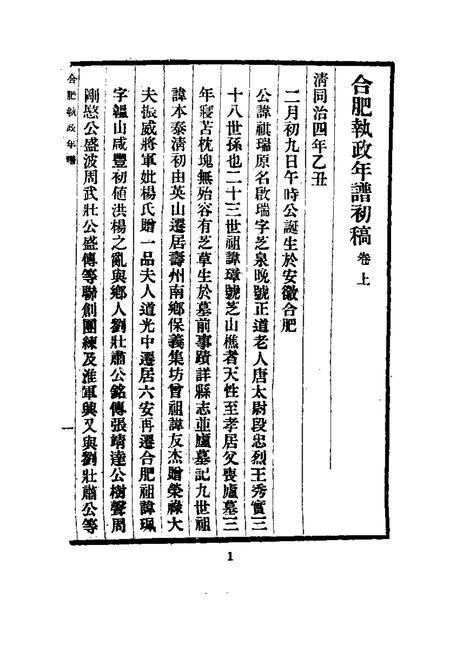 合肥執政年譜初稿 卷上
清同治四年乙丑
二月初九日午時公誕生於安徽合肥
公諱祺瑞原名啟瑞字芝泉晚號正道老人唐太尉段忠烈王秀實三
十八世孫也二十三世祖諱璋號芝山樵者天性至孝居父喪廬墓三
年寢苫枕塊無始容有芝草生於墓前事蹟詳縣志並廬墓記九世祖
諱本泰清初由英山遷居壽州南鄉保義集坊曾祖諱友杰贈榮祿大
夫振威將軍妣楊氏贈一品夫人道光中遷居六安再遷合肥祖諱珮
字韞山咸豐初値洪楊之亂與鄉人劉壯肅公銘傳張靖達公樹聲周
剛愍公盛波周武壯公盛傳等聯創團練及淮軍興又與劉壯肅公等
合肥執政年譜
一
1